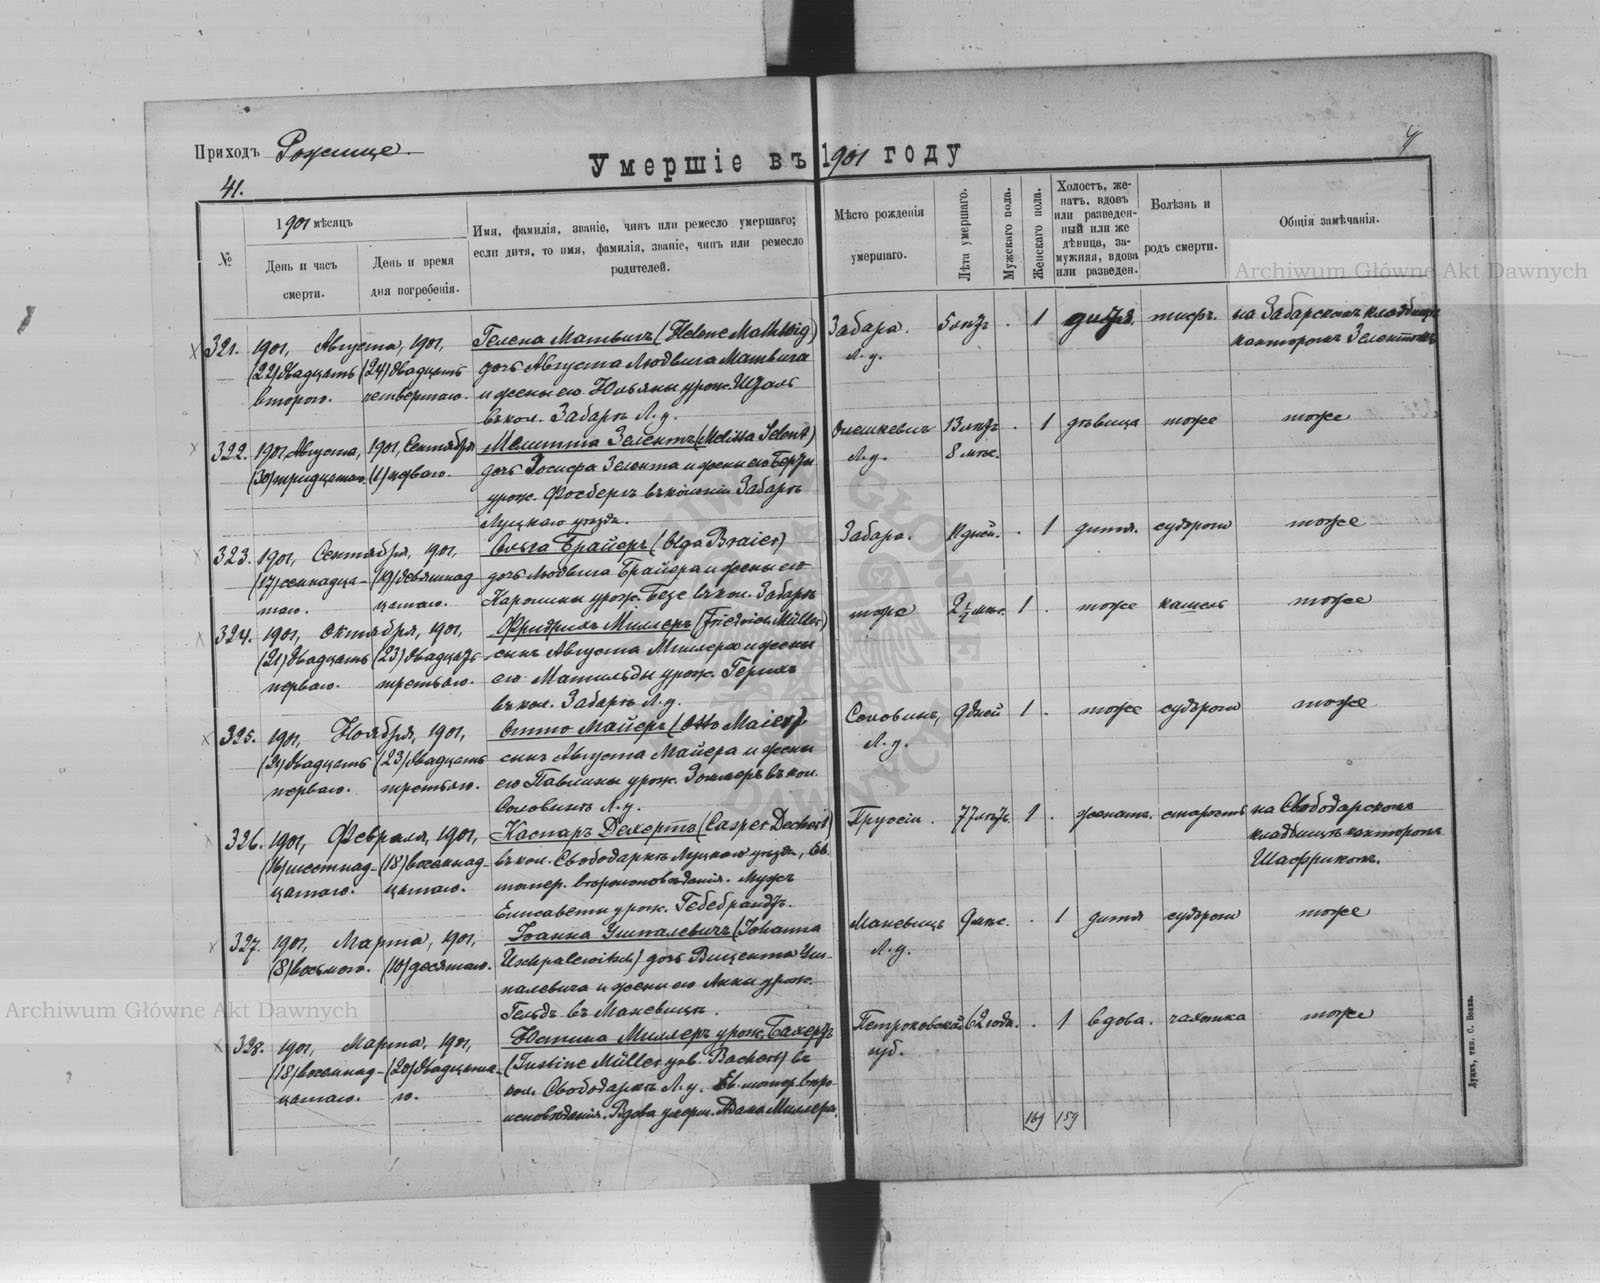 Приходъ Рожище
Умершіе въ 1901 году
41.
№
1901 мѣсяцъ
День и часъ смерти.
День и время дня погребенія.
Имя, фамилія, званіе, чинъ или ремесло умершаго;
если дитя, то имя, фамилія, званіе, чинъ или ремесло
родителей.
Мѣсто рожденія
умершаго.
Лѣта умершаго.
Мужскаго пола.
Женскаго пола.
Холостъ, же-
натъ, вдовъ
или разведен-
ный или же
дѣвица, за-
мужняя, вдова
или разведен.
Болѣзнь и
родъ смерти.
Общія замѣчанія.
Archiwum Główne Akt Dawnych
321.
1901, Августа, 1901,
(22) двадцать
второго.
(24) двадцать
четвертаго.
Гелена Матвигъ (Helene Mathwig)
дочь Августа Людвига Матвига
и жены его Юльяны урож.
въ кол. Забарѣ Л. у.
Забара.
Л. у.
5 лѣтъ
1
дитя.
тифъ.
на Забарскомъ кладбищѣ
канторомъ Зелентомъ
322.
1901, Августа,
(30) тридцатаго
1901, Сентября
(1) перваго.
Мелитта Зелентъ (Melitta Selent)
дочь Іосифа Зелента и жены его Берты
урож. Фосбергъ въ колоніи Забарѣ
Луцкаго уѣзда.
Олешкевич
Л. у.
13 лѣтъ
8 мѣс.
1
дѣвица
тоже
тоже
323.
1901, Сентября, 1901,
(17) семнадца-
таго.
(19) девятнад
цатаго.
Ольга Брайеръ (Olga Braier)
дочь Людвига Брайера и жены его
Каролины урож. Безе въ кол. Забарѣ
Забара.
11 дней.
1
дитя.
судороги
тоже
324.
1901, Октября, 1901,
(21) двадцать
перваго.
(23) двадцать
третьяго.
Фридрихъ Миллеръ (Friedrich Müller)
сынъ Августа Миллера и жены
его Матильды урож.
въ кол. Забарѣ Л. у.
тоже
2½ мѣс.
1
тоже
кашель
тоже
325.
1901, Ноября, 1901,
(21) двадцать
перваго.
(23) двадцать
третьяго.
Отто Майеръ (Otto Maier)
сынъ Августа Майера и жены
его Павлины урож. Зоммеръ въ кол.
Соловинѣ Л. у.
Соловинъ,
Л. у.
9 дней
1
тоже
судороги
тоже
326.
1901, Февраля, 1901,
(16) шестнад-
цатаго.
(18) восемнад
цатаго.
Каспаръ Дехертъ (Casper Dechert)
въ кол. Свободаркѣ Луцкаго уѣзда, Ев.
лютер. вѣроисповѣданія. Мужъ
Елисаветы урож. Гебебрандтъ.
Пруссіи.
77 лѣтъ
1
женатъ.
старость
на Свободарскомъ
кладбищѣ канторомъ
Шаффрикомъ.
327.
1901, Марта, 1901,
(8) восьмого.
(10) десятаго.
Іоанна Ушпалевичъ (Johanna
Uschpalewitsch) дочь Вицента Уш-
палевича и жены его Анны урож.
Гельдъ въ Маневицѣ.
Маневицъ
Л. у.
9 мѣс.
1
дитя
судороги
тоже
328.
1901, Марта, 1901,
(18) восемнад-
цатаго.
(20) двадцата-
го.
Юстина Миллеръ урож. Бахертъ
(Justine Müller geb. Bachert) въ
кол. Свободаркѣ Л. у. Ев. лютер. вѣро-
исповѣданія. Вдова умерш. Адама Миллера.
Петроковской
губ.
62 года.
1
вдова.
чахотка
тоже
169
159
Луцкъ, тип. С. Бонка.
Archiwum Główne Akt Dawnych